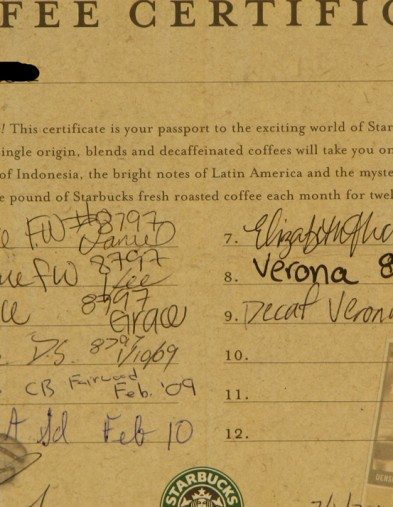 FEE CERTIFIC
! This certificate is your passport to the exciting world of Star
ingle origin, blends and decaffeinated coffees will take you on
of Indonesia, the bright notes of Latin America and the myste
e pound of Starbucks fresh roasted coffee each month for twel
FW #8797
Daniel
FW 8797
8797
Grace
D.S. 8797
1/10/09
CB Fairwood
Feb. '09
Feb 10
7. Elizabeth
8. Verona 8
9. Decaf Verona
10.
11.
12.
STARBUCKS